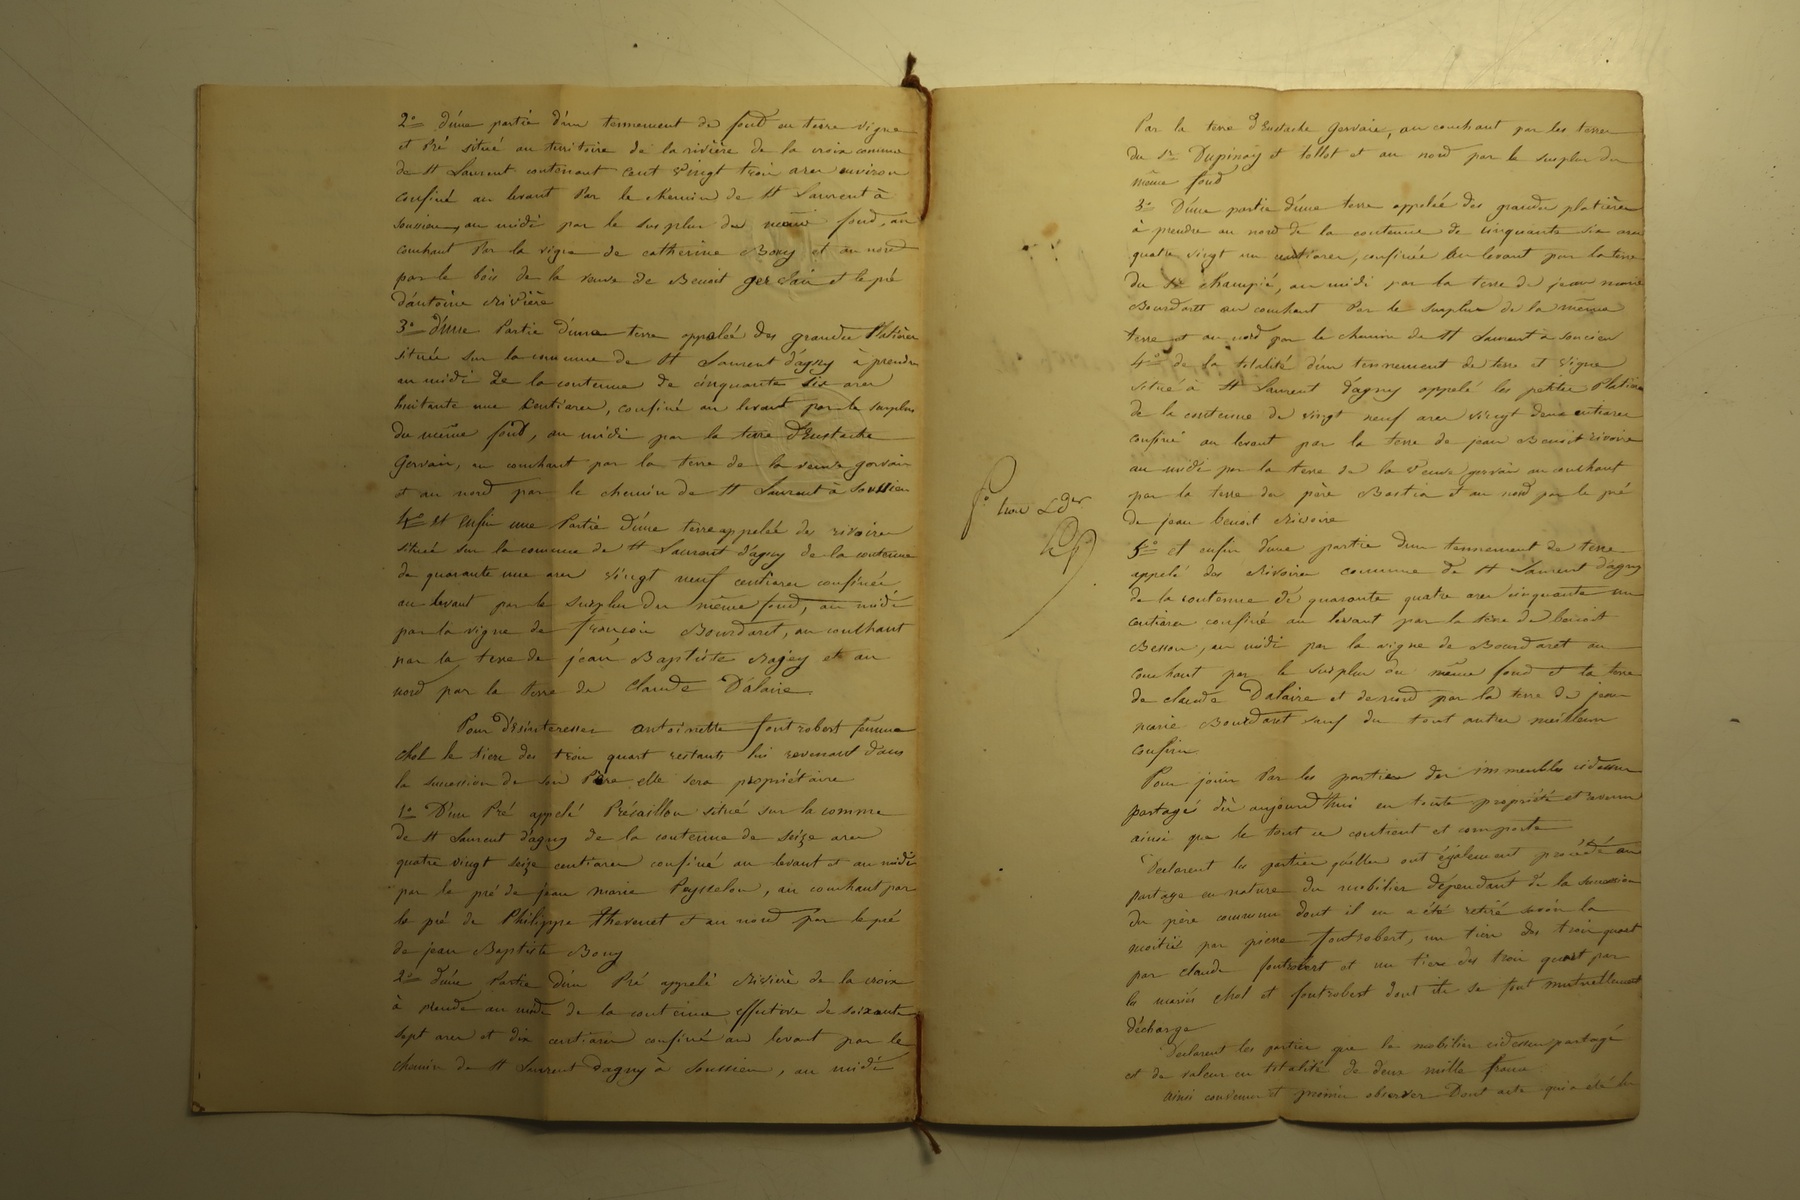 2° d'une partie d'un tennement de fond en terre vigne
et Pré situé au territoire de la rivière de la croix commune
de St Laurent contenant cent vingt trois ares environ
confiné au levant Par le chemin de St Laurent à
Soussieu, au midi par le surplus du même fond, au
couchant Par la vigne de catherine Bony et au nord
par le bois de la veuve de Benoit et le pré
d'antoine Rivière
3° d'une Partie d'une terre appelée des grandes Platières
située sur la commune de St Laurent d'agny à prendre
au midi de la contenue de cinquante six ares
huitante une centiares, confiné au levant par le surplus
du même fond, au midi par la terre d'Eustache
Gervais, au couchant par la terre de la veuve gervais
et au nord par le chemin de St Laurent à Soussieu
4° et enfin une Partie d'une terre appelée des rivoires
située sur la commune de St Laurent d'agny de la contenue
de quarante une ares vingt neuf centiares confinée
au levant par le surplus du même fond, au midi
par la vigne de françois Bourdaret, au couchant
par la terre de jean Baptiste Ragey et au
nord par la terre de Claude Dalaire
Pour Désintéresser antoinette fontrobert femme
chol le tiers des trois quart restants lui revenant dans
la succession de son Père elle sera propriétaire
1° D'un Pré appelé Présaillon situé sur la commune
de St Laurent d'agny de la contenue de seize ares
quatre vingt seize centiares confiné au levant et au midi
par le pré de jean marie Peysselon, au couchant par
le pré de Philippe thevenet et au nord par le pré
de jean Baptiste Bony
2° d'une Partie d'un Pré appelé Rivière de la croix
à prendre au midi de la contenue effective de soixante
sept ares et dix centiares confiné au levant par le
chemin de St Laurent Dagny à Soussieu, au midi
Par la terre d'Eustache Gervais, au couchant par les terres
du Sr Dupinay et tollot et au nord par le surplus du
même fond
3° D'une partie d'une terre appelée des grandes platières
à prendre au nord de la contenue de cinquante six ares
quatre vingt un centiares, confinée au levant par la terre
du Sr champié, au midi par la terre de jean marie
Bourdaret au couchant Par le surplus de la même
terre et au nord par le chemin de St Laurent à Soucieu
4° de la totalité d'un tennement de terre et Vigne
situé à St Laurent d'agny appelé les petites Platières
de la contenue de vingt neuf ares vingt deux centiares
confiné au levant par la terre de jean Benoit rivoire
au midi par la terre de la Veuve gervais au couchant
par la terre du père Bastia et au nord par le pré
de jean benoit Rivoire
5° et enfin d'une partie d'un tennement de terre
appelé des Rivoires commune de St Laurent d'agny
de la contenue de quarante quatre ares cinquante un
centiares confiné au levant par la terre de benoit
Besson, au midi par la vigne de Bourdaret au
couchant par le surplus du même fond et la terre
de claude Dalaire et de nord par la terre de jean
marie Bourdaret sauf du tout autres meilleurs
confins
Pour jouir Par les parties des immeubles cidessus
partagés dès aujourd'hui en toute propriété et revenu
ainsi que le tout se contient et comporte
Déclarent les parties qu'elles ont également procédé au
partage en nature du mobilier dépendant de la succession
du père commun dont il en a été retiré savoir la
moitié par pierre fontrobert, un tiers des trois quart
par claude fontrobert et un tiers des trois quart par
les mariés chol et fontrobert dont ils se font mutuellement
décharge
Déclarent les parties que le mobilier cidessus partagé
est de valeur en totalité de deux mille francs
ainsi convenu et promis observer Dont acte qui a été lu